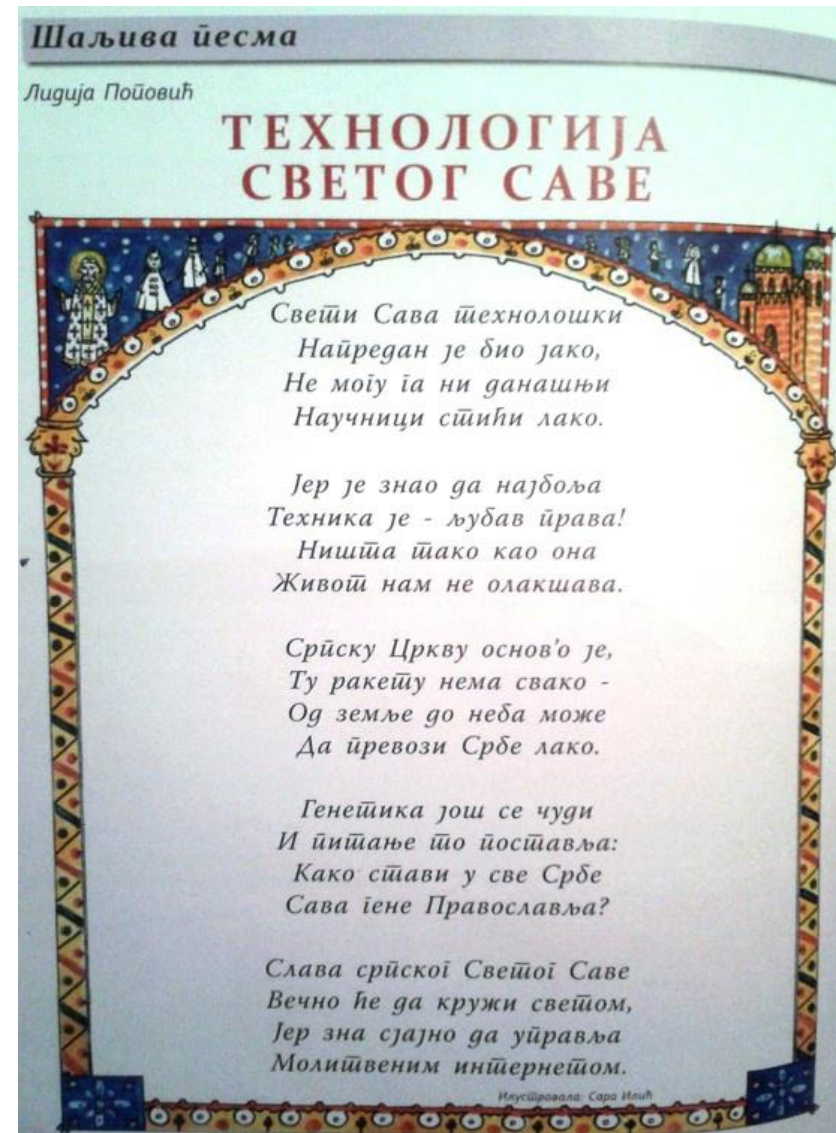 Шаљива песма
Лидија Поповић
ТЕХНОЛОГИЈА
СВЕТОГ САВЕ
Свети Сава технолошки
Напредан је био јако,
Не могу га ни данашњи
Научници стићи лако.
Јер је знао да најбоља
Техника је - љубав права!
Ништа тако као она
Живот нам не олакшава.
Српску Цркву основ’о је,
Ту ракету нема свако -
Од земље до неба може
Да превози Србе лако.
Генетика још се чуди
И питање то поставља:
Како стави у све Србе
Сава гене Православља?
Слава српског Светог Саве
Вечно ће да кружи светом,
Јер зна сјајно да управља
Молитвеним интернетом.
Илустровала: Сара Илић